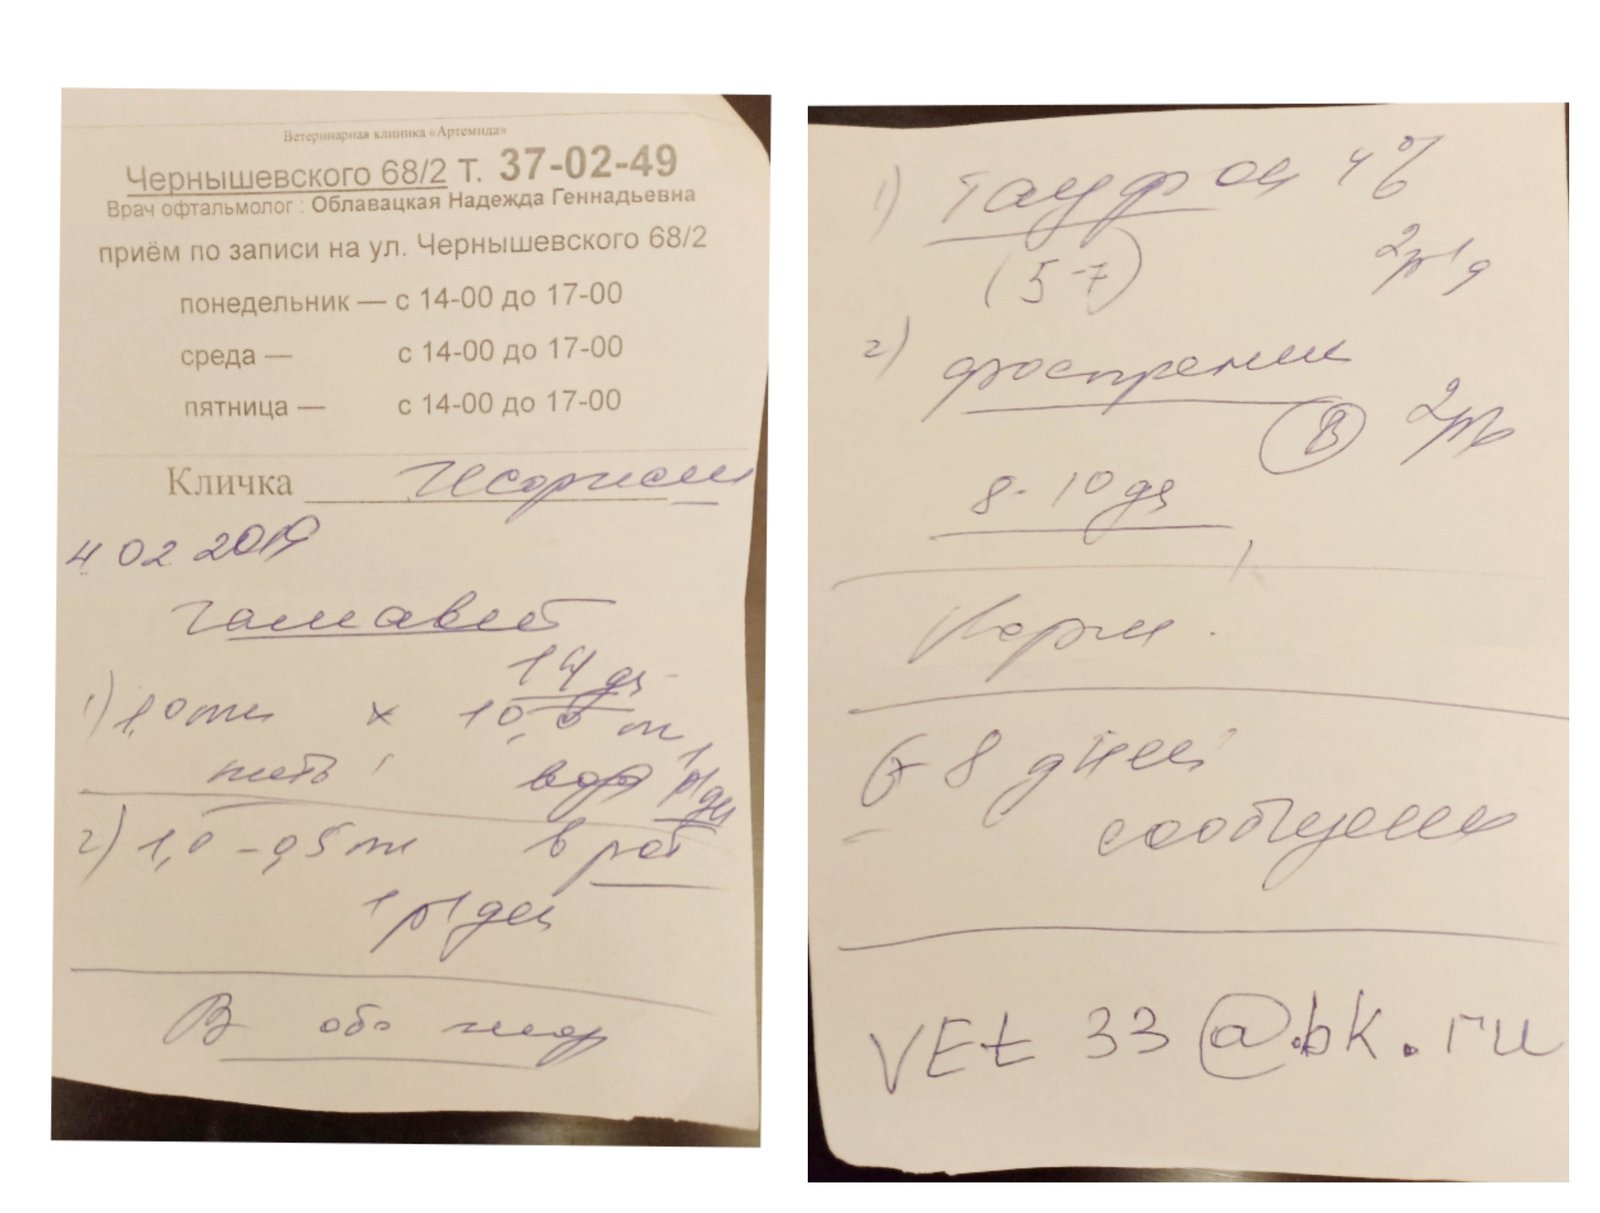 Ветеринарная клиника «Артемида»
Чернышевского 68/2 т. 37-02-49
Врач офтальмолог : Облавацкая Надежда Геннадьевна
приём по записи на ул. Чернышевского 68/2
понедельник — с 14-00 до 17-00
среда — с 14-00 до 17-00
пятница — с 14-00 до 17-00
Кличка
4 02 2019
гамавит
14 дн
1) 1,0 мл х 10,0 мл
пить ! воды 1 р/ден
2) 1,0 - 0,5 мл в рот
1 р/ден
В обе
1) Тауфон 4%
(5-7) 2 р/д
2) фоспренил
В 2 р/д
8-10 дн
Корм.
7-8 дней
VEt 33@bk.ru